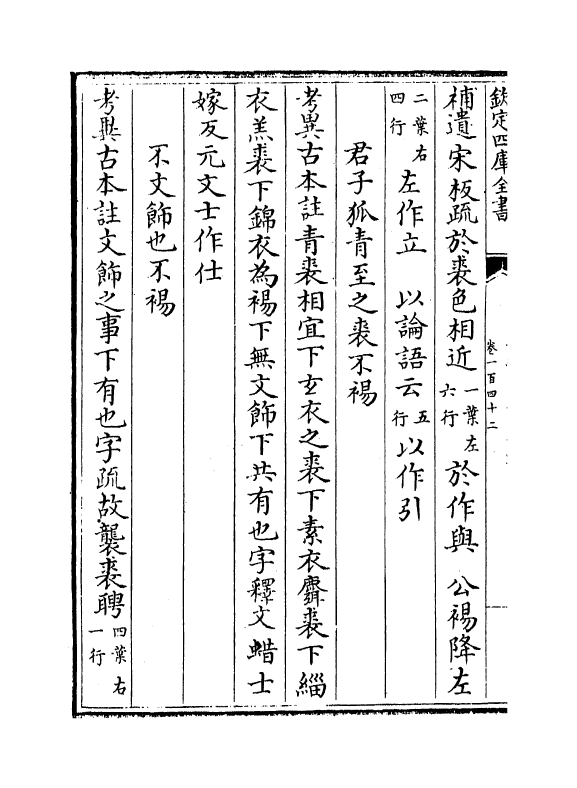 欽定四庫全書
卷一百四十二
補遺宋板疏於裘色相近一葉左六行於作與 公裼降左
二葉右四行左作立 以論語云五行以作引
君子狐青至之裘不裼
考異古本註青裘相宜下玄衣之裘下素衣麛裘下緇
衣羔裘下錦衣為裼下無文飾下共有也字釋文蜡士
嫁反元文士作仕
不文飾也不裼
考異古本註文飾之事下有也字疏故襲裘聘四葉右一行